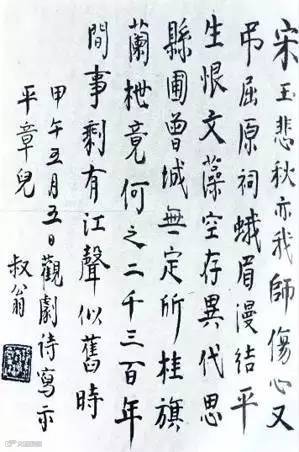 宋玉悲秋亦我師傷心又
弔屈原祠蛾眉漫結平
生恨文藻空存異代思
縣圃曾城無定所桂旗
蘭枻竟何之二千三百年
間事剩有江聲似舊時
甲午五月五日觀劇詩寫示
平章兒
叔翁